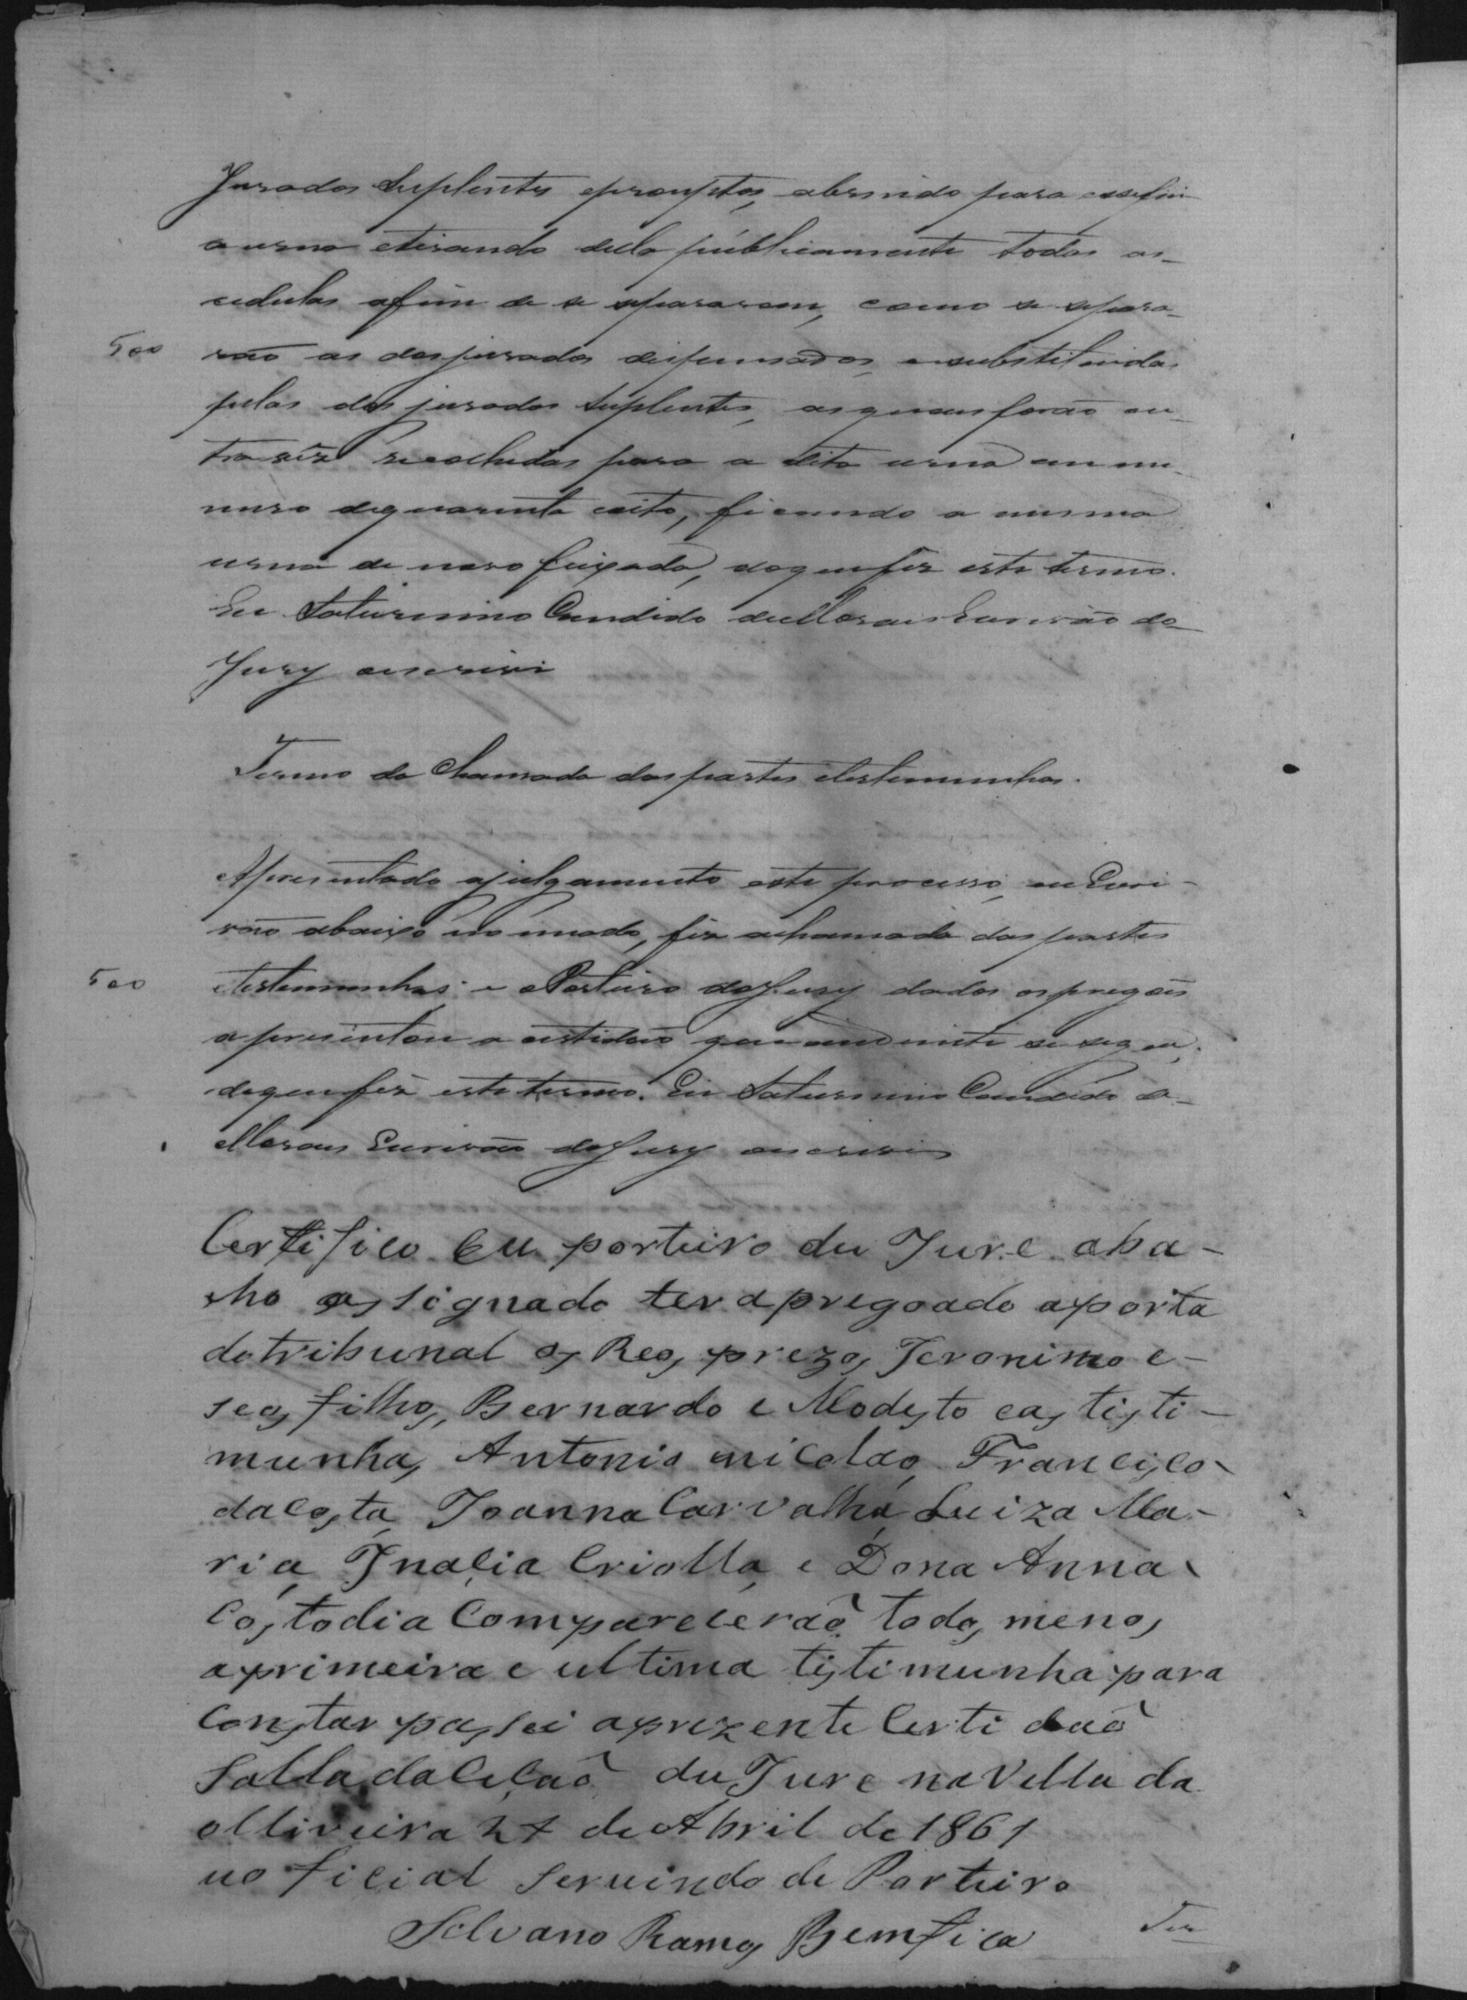 Jurados Suplentes epromptos, abrindo para essefim
a urna etirando della públicamente todas as
cedulas afim de se separarem, como se separa-
500
rão as dosjurados dispensados, esubstituidas
pelas dos jurados Suplentes, asquaes forão ou-
tra vêz recolhidas para a dita urna em nu-
mero dequarenta eoito, ficando a mesma
urna de novo feixada, doquefiz este termo.
Eu Saturnino Candido deMoraes Escrivão do
Jury oescrivi
Termo da Chamada daspartes etestemunhas.
Apresentado ajulgamento este processo, eu Escri-
vão abaixo nomeado, fiz achamada das partes
500
etestemunhas; e oPorteiro doJury dados ospregões
apresentou a certidão que aodiante se segue;
doquefiz este termo. Eu Saturnino Candido de
Moraes Escrivão doJury oescrivi
Certifico Eu porteiro du Jure aba-
cho assignado ter apregoado aporta
dotribunal os Reos prezos Jeronimo e
seos filhos, Bernardo e Modesto eas tisti-
munhas Antonio nicoláo, Francisco
dacosta, Joanna Carvalha, Luiza Ma-
ria, Inacia Criolla, e Dona Anna
Costodia Comparecerão todos menos
aprimeira e ultima tistimunha para
Constar passei aprezente Certi daõ
Salla daCeçaõ du Jure na Villa da
olliveira 27 de Abril de 1861
uo ficial servindo de Porteiro
Selvano Ramos Bemfica
Ter